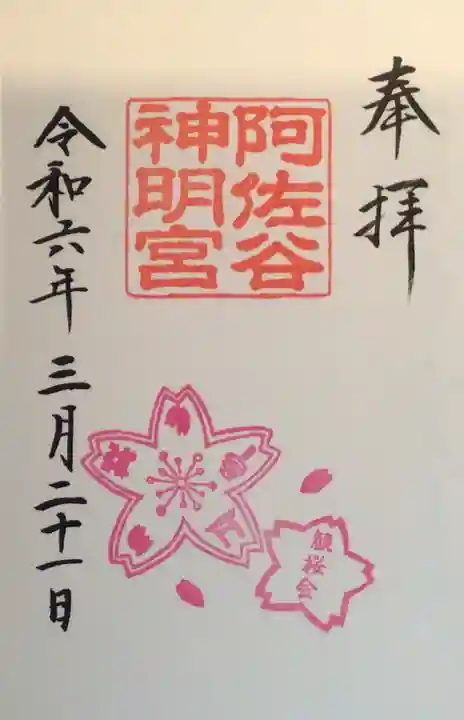 奉拝
阿佐谷
神明宮
令和六年 三月二十一日
観桜会